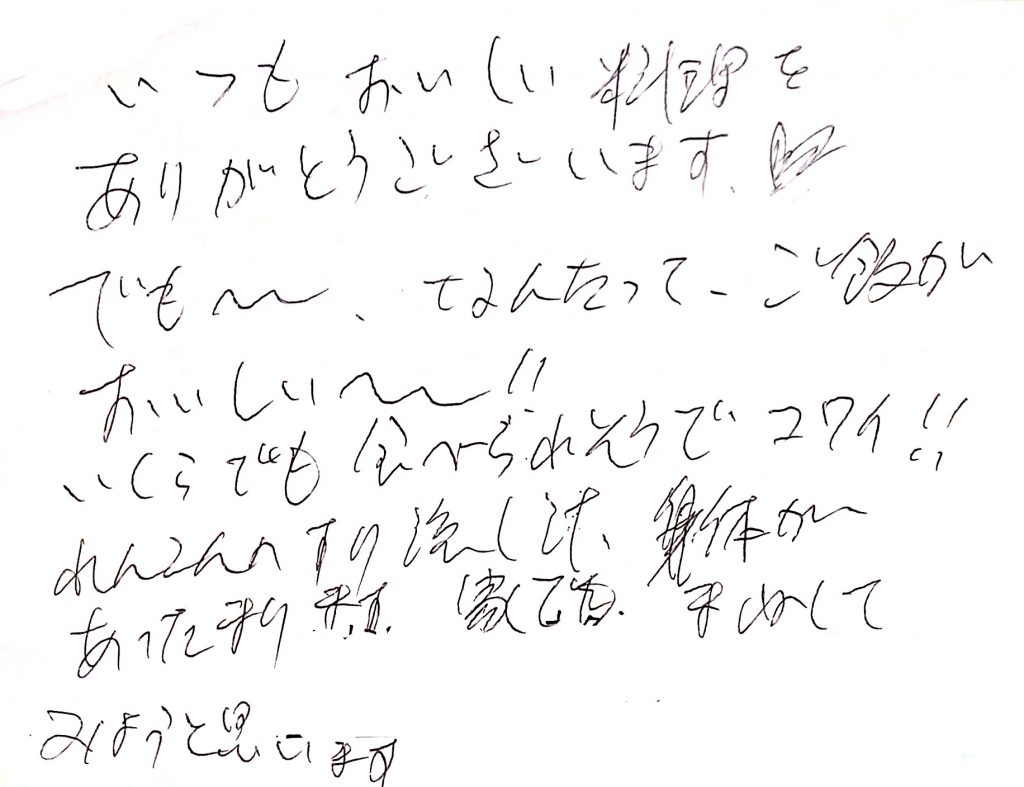 いつもおいしい料理を
ありがとうございます。
でも〜〜、なんたって、ご飯が
おいしい〜〜!!
いくらでも食べられそうでコワイ!!
れんこんのすり流しも、身体が
あったまります。家でも、まねして
みようと思います